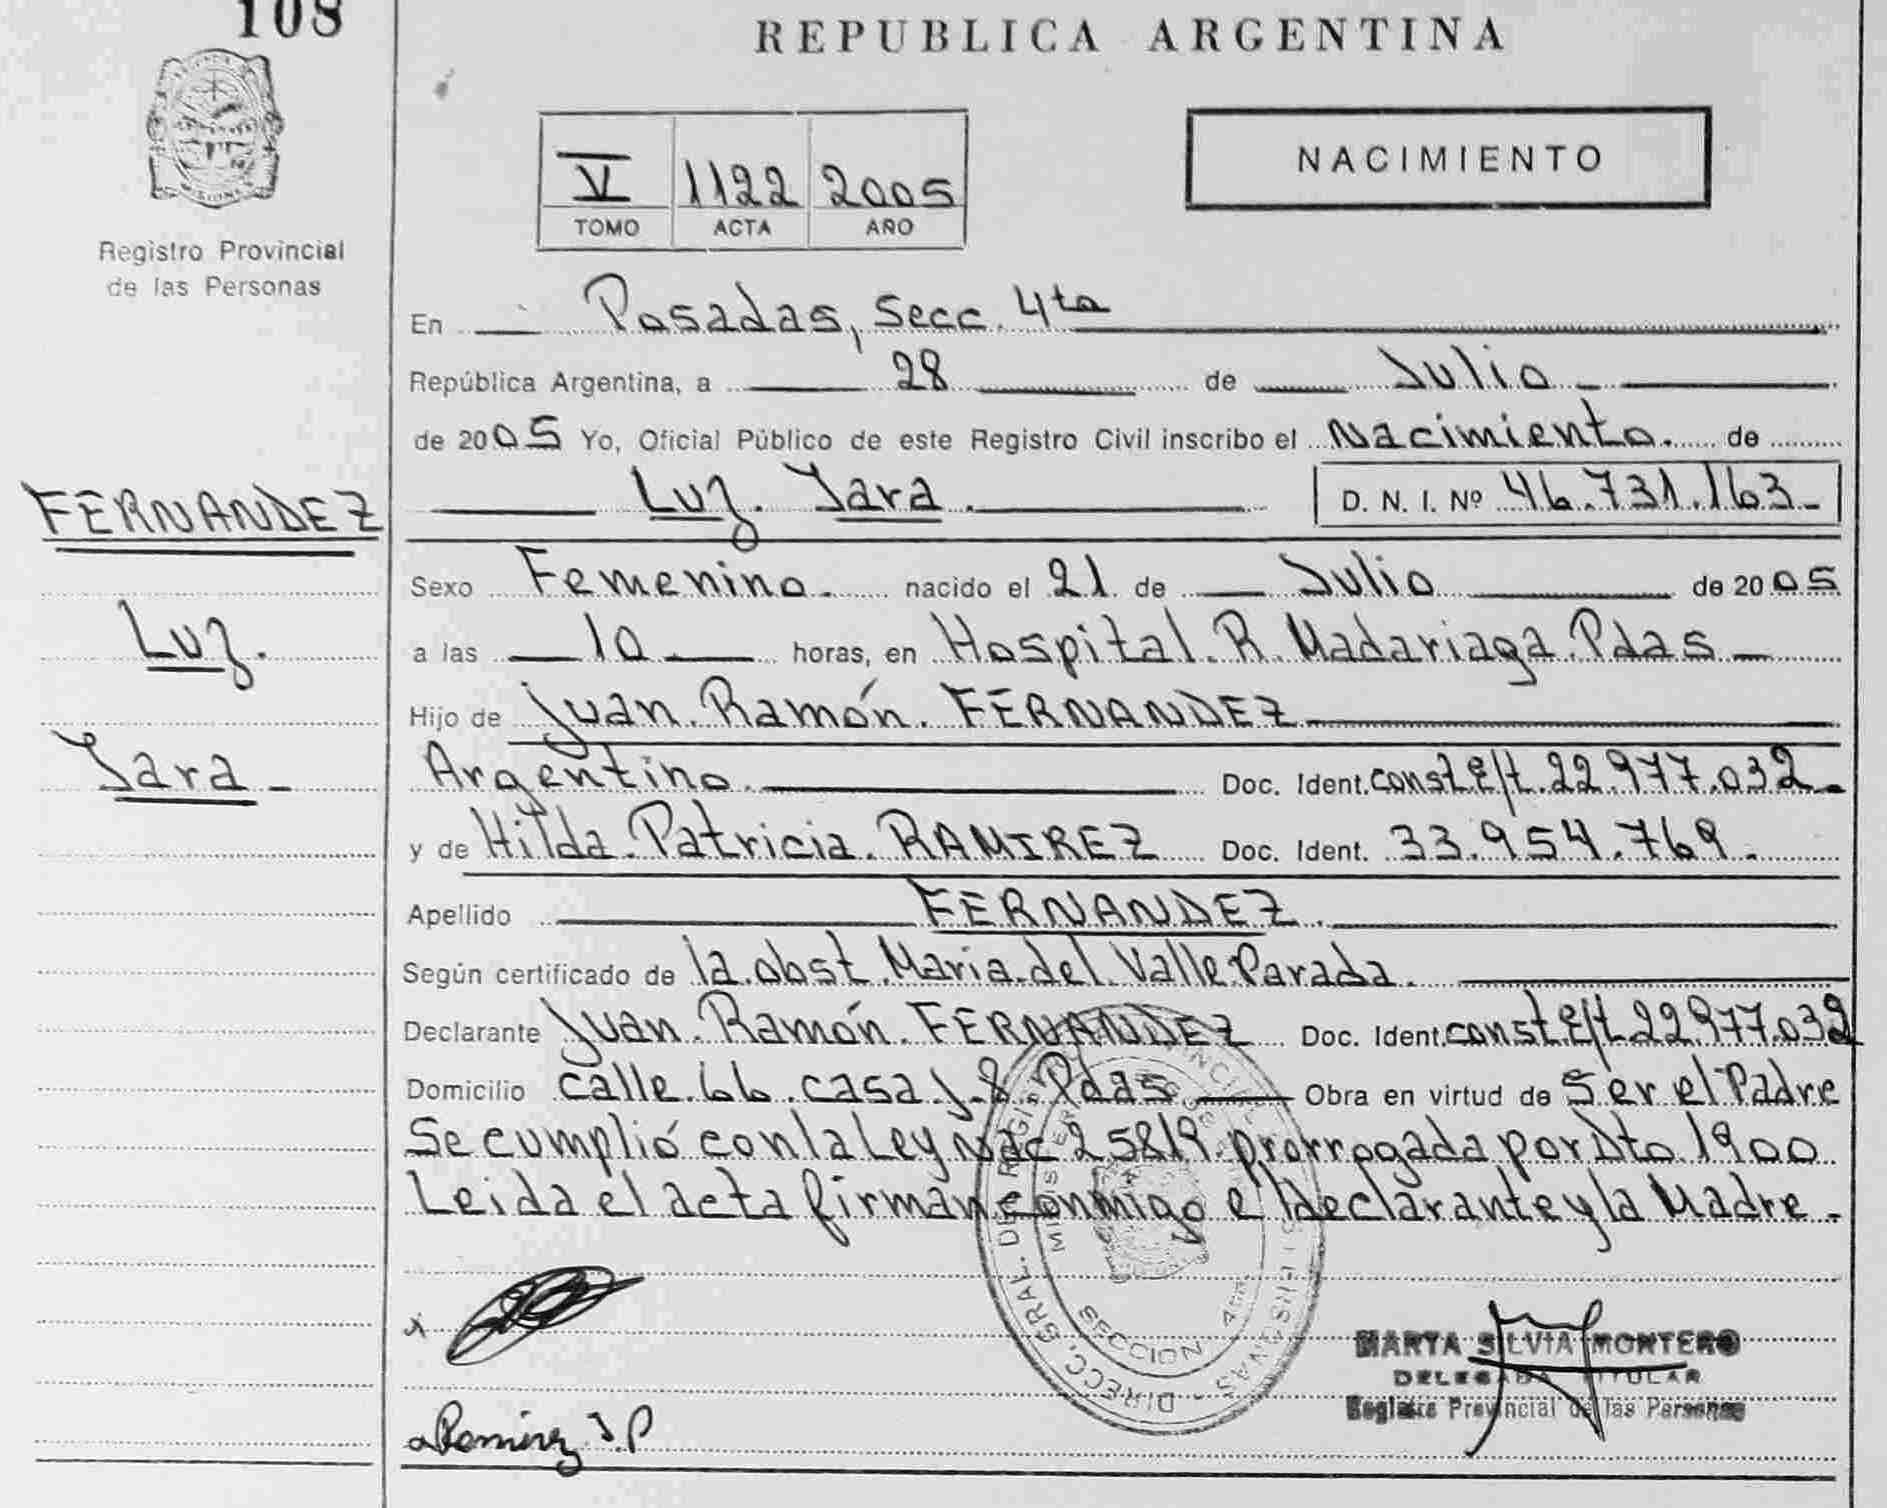 108
REPUBLICA ARGENTINA
MISIONES
Registro Provincial
de las Personas
V 1122 2005
TOMO ACTA AÑO
NACIMIENTO
En Posadas, Secc. 4ta
República Argentina, a 28 de Julio
de 2005 Yo, Oficial Público de este Registro Civil inscribo el Nacimiento. de
Luz. Jara. D. N. I. Nº 46.731.163-
FERNANDEZ
Luz.
Jara-
Sexo Femenino. nacido el 21 de Julio de 2005
a las 10 horas, en Hospital. R. Madariaga. Pdas
Hijo de Juan. Ramón. FERNANDEZ
Argentino. Doc. Ident. const. e/t. 22.977.032-
y de Hilda. Patricia. RAMIREZ Doc. Ident. 33.954.769.
Apellido FERNANDEZ.
Según certificado de la obst. Maria del Valle Parada.
Declarante Juan. Ramón. FERNANDEZ Doc. Ident. const. e/t. 22977.032
Domicilio calle. 66. casa J-8. Pdas Obra en virtud de Ser el Padre
Se cumplió con la Ley Nac 25819. prorrogada por Dto. 1900
Leida el acta firman conmigo el declarante y la Madre.-
DIRECC. GRAL. DE REGISTRO PROVINCIAL PERSONAS
SECCION 4ta
MARTA SILVIA MONTERO
DELEGADA TITULAR
Registro Provincial de las Personas
Ramirez J.P